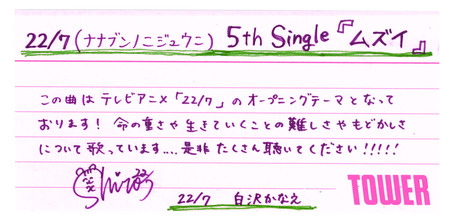 22/7(ナナブンノニジュウニ) 5th Single『ムズイ』
この曲はテレビアニメ「22/7」のオープニングテーマとなって
おります! 命の重さや生きていくことの難しさやもどかしさ
について歌っています....是非たくさん聴いてください!!!!!
22/7 白沢かなえ
TOWER